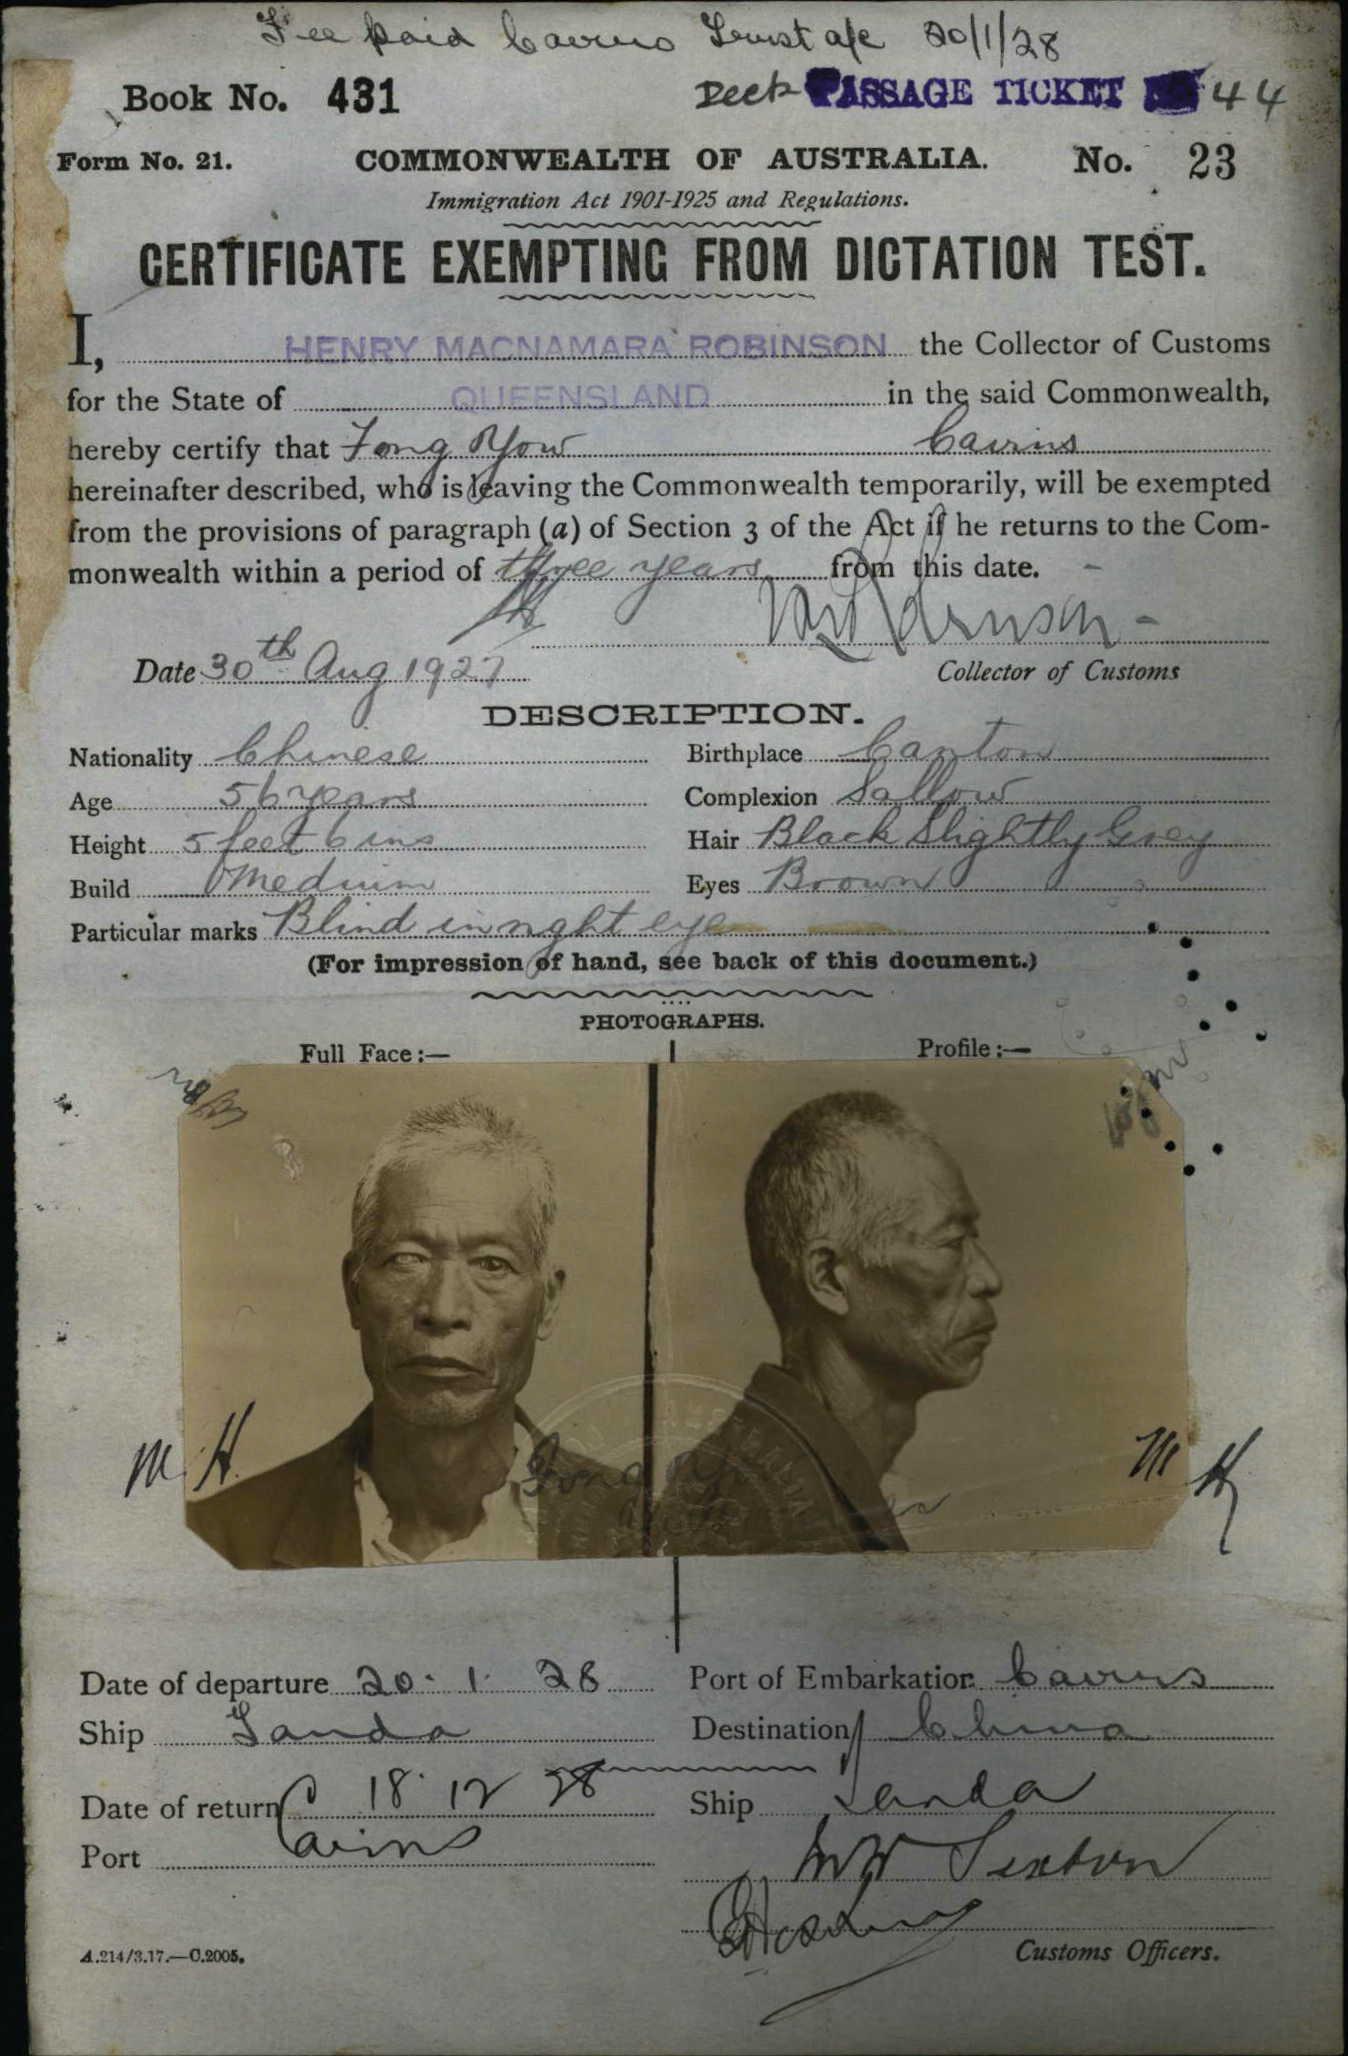 Fee paid Cairns Trust a/c 20/1/28
Book No. 431 Deck PASSAGE TICKET 44
Form No. 21. COMMONWEALTH OF AUSTRALIA. No. 23
Immigration Act 1901-1925 and Regulations.
CERTIFICATE EXEMPTING FROM DICTATION TEST.
I, HENRY MACNAMARA ROBINSON the Collector of Customs
for the State of QUEENSLAND in the said Commonwealth,
hereby certify that Fong Yow Cairns
hereinafter described, who is leaving the Commonwealth temporarily, will be exempted
from the provisions of paragraph (a) of Section 3 of the Act if he returns to the Com-
monwealth within a period of three years from this date.
Date 30th Aug 1927 Collector of Customs
DESCRIPTION.
Nationality Chinese Birthplace Canton
Age 56 years Complexion Sallow
Height 5 feet 6 ins Hair Black Slightly Grey
Build Medium Eyes Brown
Particular marks Blind in right eye
(For impression of hand, see back of this document.)
PHOTOGRAPHS.
Full Face:— Profile:—
M. H. M H
Fong Yow
Date of departure 20. 1. 28 Port of Embarkation Cairns
Ship Tanda Destination China
Date of return 18 12 28 Ship Tanda
Port Cairns
Sexton
A.214/3.17.—C.2005. Customs Officers.